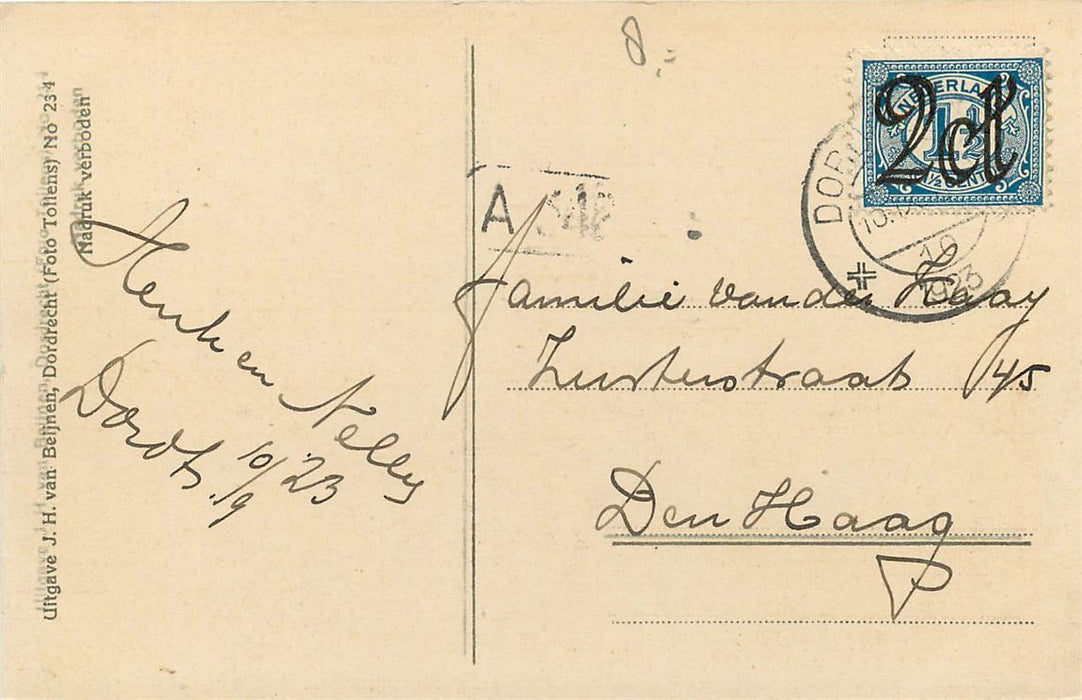 Uitgave J. H. van Beijnen, Dordrecht (Foto Tollens) No 234
Nadruk verboden
Henk en Nelly
Dordt 10/9 '23
8,=
NEDERLAND
1½
1½ CENT
2ct
DOR
10.IX
10
1923
A
Familie van der Haay
Zusterstraat 45
Den Haag